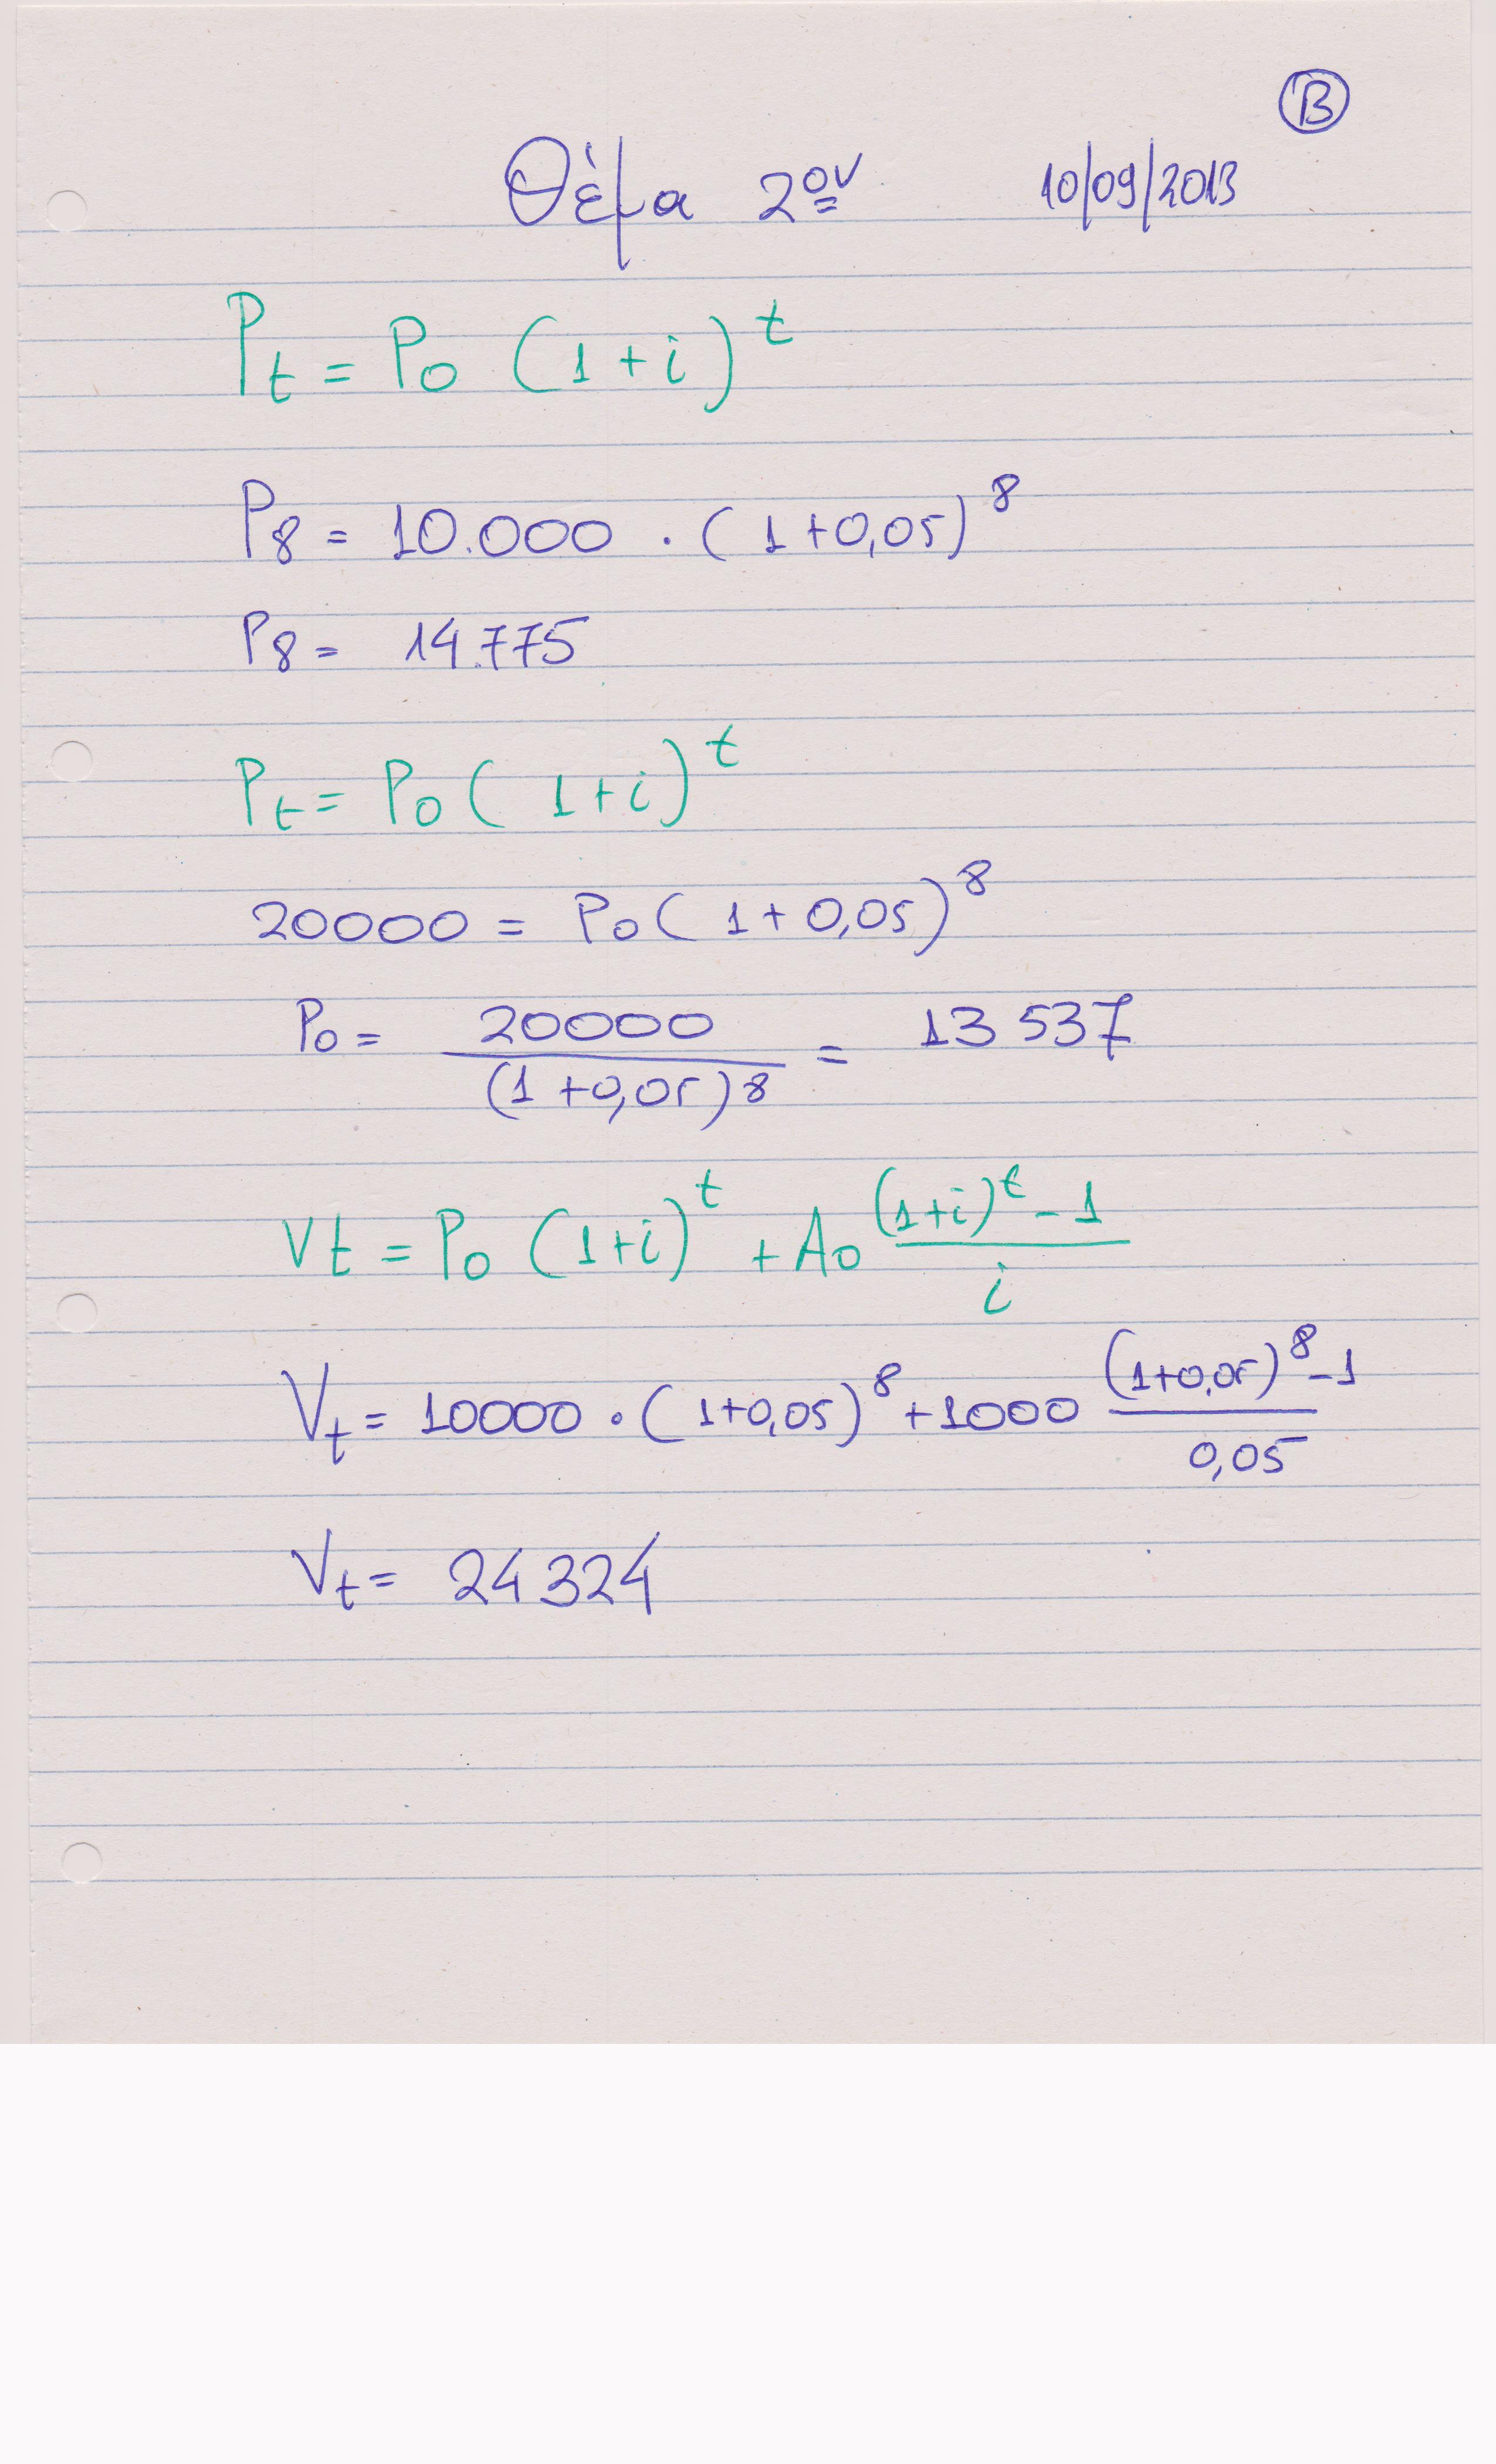 Β
Θέμα 2ον 10/09/2013
Pt = P0 (1+i)^t
P8 = 10.000 · (1+0,05)^8
P8 = 14.775
Pt = P0 (1+i)^t
20000 = P0 (1+0,05)^8
P0 = 20000 / (1+0,05)^8 = 13 537
Vt = P0 (1+i)^t + A0 ((1+i)^t - 1) / i
Vt = 10000 · (1+0,05)^8 + 1000 ((1+0,05)^8 - 1) / 0,05
Vt = 24 324